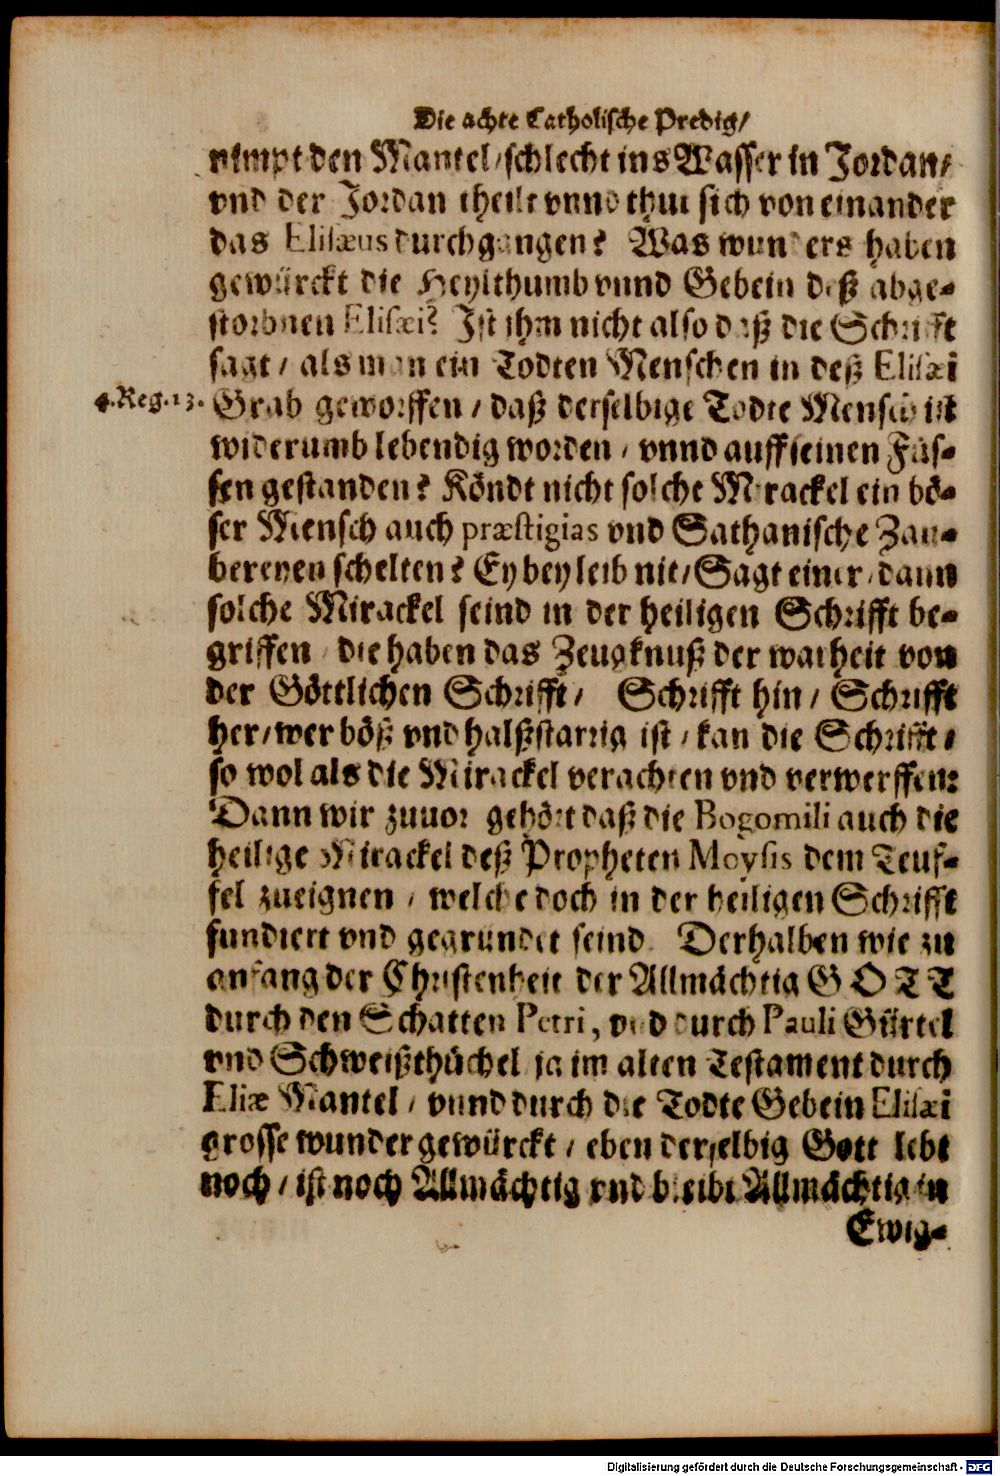 Die achte Catholische Predig/
nimpt den Mantel/schlecht ins Wasser in Jordan/
vnd der Jordan theilt vnnd thut sich von einander
das Elisæus durchgangen? Was wunders haben
gewürckt die Heylthumb vnnd Gebein deß abge-
storbnen Elisæi? Ist ihm nicht also daß die Schrifft
sagt/ als man ein Todten Menschen in deß Elisæi
4.Reg.13. Grab geworffen/ daß derselbige Todte Mensch ist
widerumb lebendig worden/ vnnd auff seinen Füs-
sen gestanden? Köndt nicht solche Mirackel ein bö-
ser Mensch auch præstigias vnd Sathanische Zau-
bereyen schelten? Ey bey leib nit/ Sagt einer/ dann
solche Mirackel seind in der heiligen Schrifft be-
griffen/ die haben das Zeugknuß der warheit von
der Göttlichen Schrifft/ Schrifft hin/ Schrifft
her/wer böß vnd halßstarrig ist/ kan die Schrifft/
so wol als die Mirackel verachten vnd verwerffen:
Dann wir zuuor gehört daß die Bogomili auch die
heilige Mirackel deß Propheten Moysis dem Teuf-
fel zueignen/ welche doch in der heiligen Schrifft
fundiert vnd gegründet seind. Derhalben wie zu
anfang der Christenheit der Allmächtig GOTT
durch den Schatten Petri, vnd durch Pauli Gürtel
vnd Schweißthüchel ja im alten Testament durch
Eliæ Mantel/ vnnd durch die Todte Gebein Elisæi
grosse wunder gewürckt/ eben derselbig Gott lebt
noch/ ist noch Allmächtig vnd bleibt Allmächtig in
Ewig-
Digitalisierung gefördert durch die Deutsche Forschungsgemeinschaft - DFG